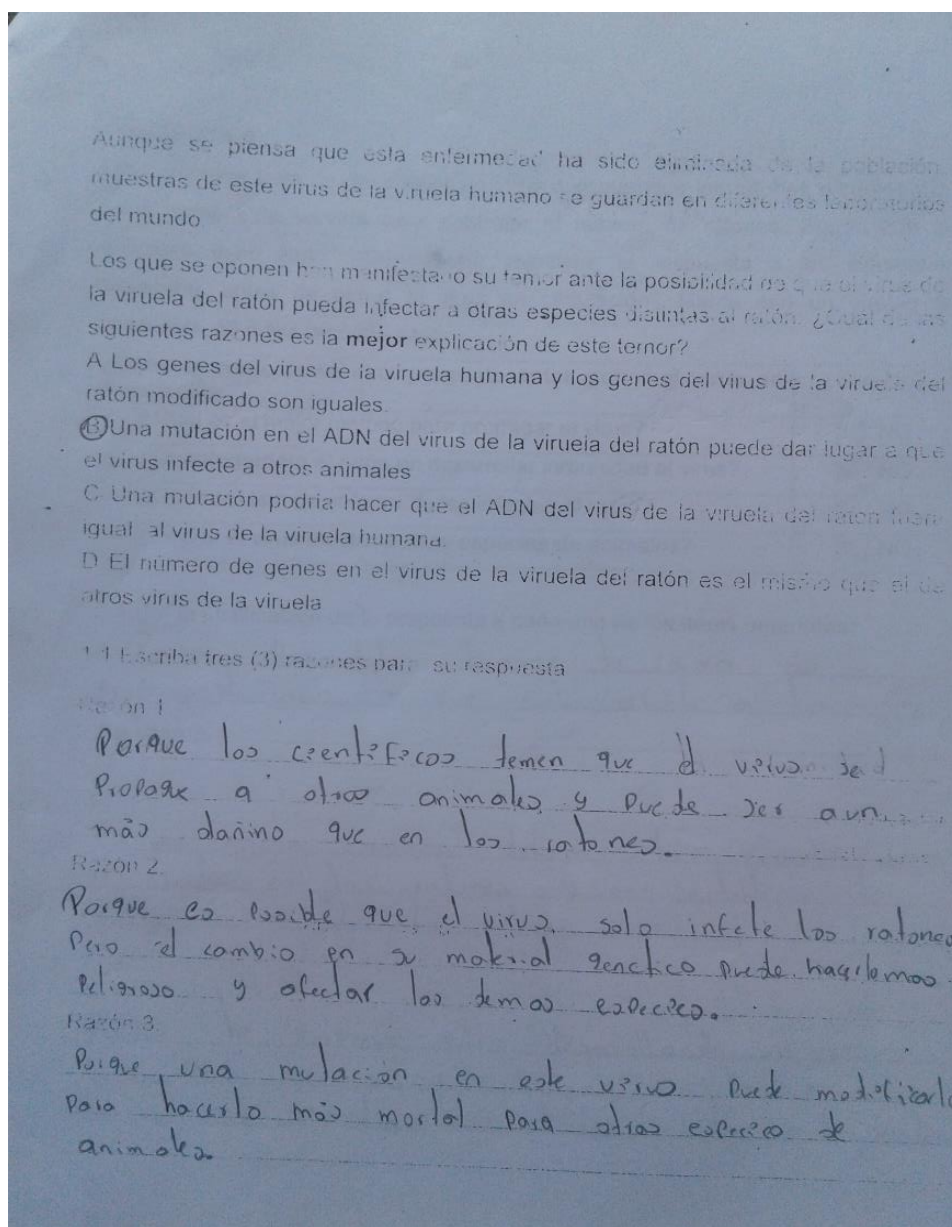 Aunque se piensa que esta enfermedad ha sido eliminada de la población,
muestras de este virus de la viruela humano se guardan en diferentes laboratorios
del mundo
Los que se oponen han manifestado su temor ante la posibilidad de que el virus de
la viruela del ratón pueda infectar a otras especies distintas al ratón. ¿Cuál de las
siguientes razones es la mejor explicación de este temor?
A Los genes del virus de la viruela humana y los genes del virus de la viruela del
ratón modificado son iguales.
B Una mutación en el ADN del virus de la viruela del ratón puede dar lugar a que
el virus infecte a otros animales
C Una mutación podría hacer que el ADN del virus de la viruela del ratón fuera
igual al virus de la viruela humana.
D El número de genes en el virus de la viruela del ratón es el mismo que el de
otros virus de la viruela
1.1 Escriba tres (3) razones para su respuesta
Razón 1
Porque los cientificos temen que el virus se
Propague a otros animales y puede ser aun
más dañino que en los ratones.
Razón 2.
Porque es posible que el virus solo infecte los ratones
Pero el cambio en su material genetico puede hacerlo mas
Peligroso y afectar las demas especies.
Razón 3
Porque una mutación en este virus puede modificarlo
para hacerlo más mortal para otras especies de
animales.